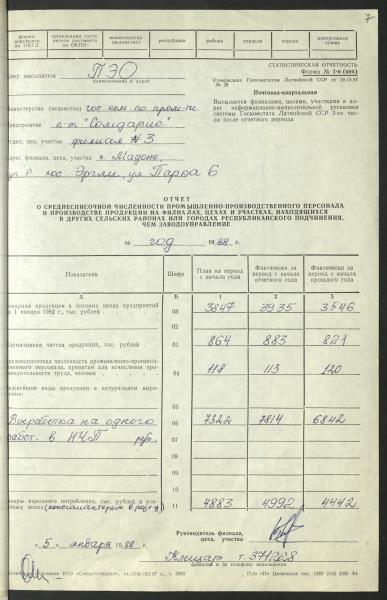 7
формы документа по ОКУД
организации составителя документа по ОКПО
министерства (ведомства)
республики
района
отрасли
города
контрольная сумма
СТАТИСТИЧЕСКАЯ ОТЧЕТНОСТЬ
Форма № 1-п (цех)
Утверждена Госкомстатом Латвийской ССР от 09.10.87
Почтовая—квартальная
Высылается филиалами, цехами, участками в адрес информационно-вычислительной установки системы Госкомстата Латвийской ССР 3-го числа после отчетного периода
му высылается ПЭО
наименование и адрес
Министерство (ведомство)
Предприятие "Солидарис"
филиал № 3
филиала, цеха, участка г. Мадоне,
пос. Эргли, ул Парка 6
ОТЧЕТ
О СРЕДНЕСПИСОЧНОЙ ЧИСЛЕННОСТИ ПРОМЫШЛЕННО-ПРОИЗВОДСТВЕННОГО ПЕРСОНАЛА
И ПРОИЗВОДСТВЕ ПРОДУКЦИИ НА ФИЛИАЛАХ, ЦЕХАХ И УЧАСТКАХ, НАХОДЯЩИХСЯ
В ДРУГИХ СЕЛЬСКИХ РАЙОНАХ ИЛИ ГОРОДАХ РЕСПУБЛИКАНСКОГО ПОДЧИНЕНИЯ,
ЧЕМ ЗАВОДОУПРАВЛЕНИЕ
за год 1988 г.
Показатели Шифр План на период с начала года Фактически за период с начала отчетного года Фактически за период с начала прошлого года
А Б 1 2 3
варная продукция в оптовых ценах предприятий
а 1 января 1982 г., тыс. рублей 03 3847 3935 3546
ормативная чистая продукция, тыс. рублей 864 883 821
реднесписочная численность промышленно-производ-
твенного персонала, принятая для исчисления произ-
водительности труда, человек 04 118 113 120
ажнейшие виды продукции в натуральном выра-
жении:
05
Выработка на одного 06 7322 7814 6842
работ. в НЧП руб. 07
08
09
10
вары народного потребления, тыс. рублей в роз-
ничных ценах 11 4883 4992 4442
Руководитель филиала,
цеха, участка
«5» января 1988 г.
т. 371228
фамилия и № телефона исполнителя